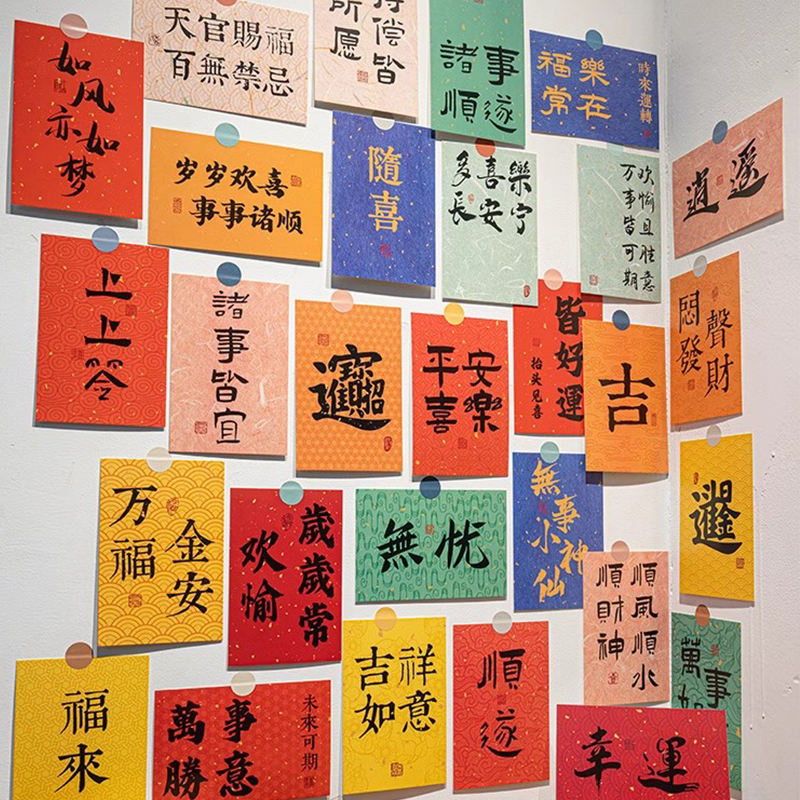 如风
亦如梦
天官賜福
百無禁忌
偿皆
所愿
諸事
順遂
福樂
常在
時來運轉
岁岁欢喜
事事诸顺
隨喜
多喜樂
長安宁
欢愉且胜意
万事皆可期
逍遥
上上签
諸事皆宜
招財進寶
平安
喜樂
皆好運
抬头见喜
吉
悶聲
發財
万福
金安
歲歲常
欢愉
無忧
無事
小神仙
日進斗金
順風順水
順財神
萬事
如
福來
萬事
勝意
未來可期
吉祥
如意
順遂
幸運